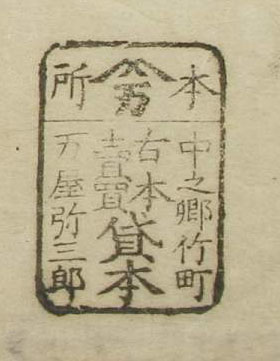 本所
万
中之郷竹町
古本
賣買
貸本
万屋弥三郎